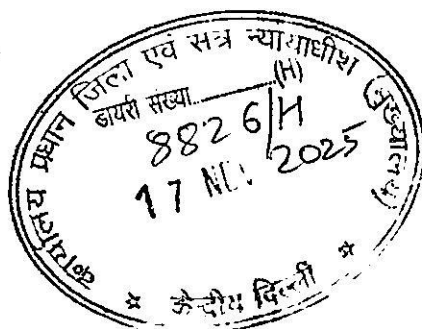 कार्यालय प्रधान जिला एवं सत्र न्यायाधीश (मुख्यालय)
डायरी संख्या..............(H)
8826/H
17 NOV 2025
* केन्द्रीय दिल्ली *